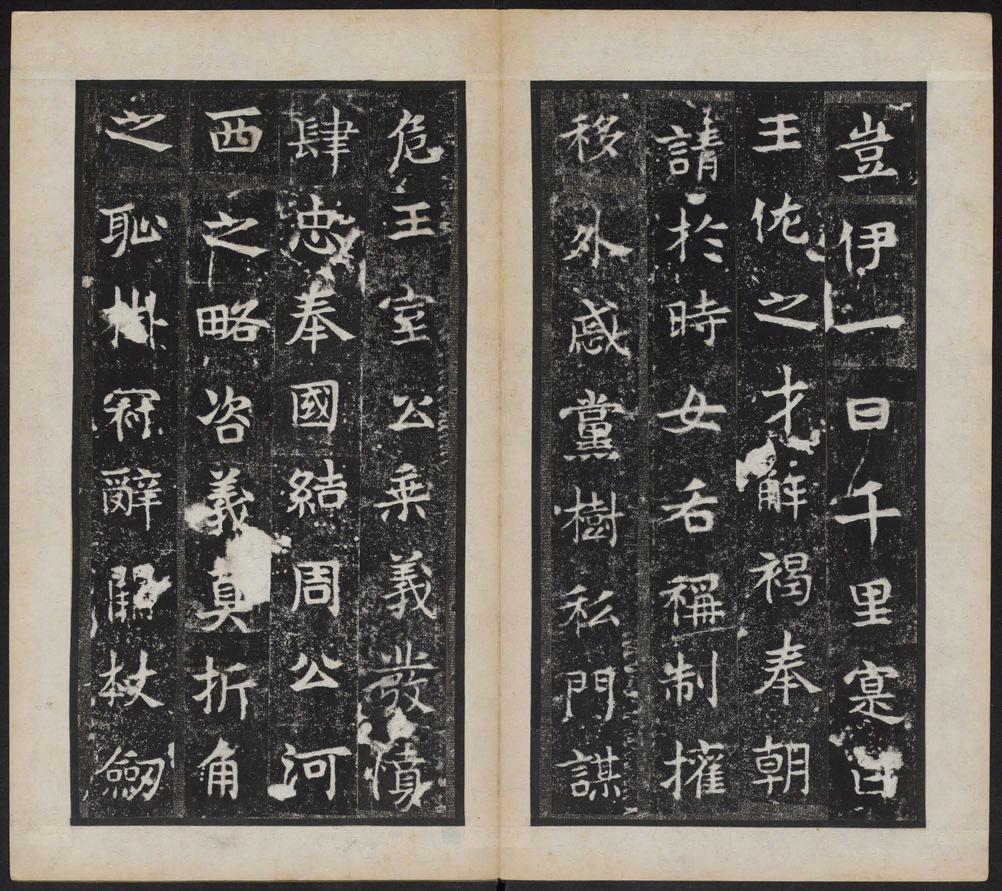 豈伊一日千里寔曰
王佐之才解褐奉朝
請於時女后稱制擁
移外慼黨樹私門謀
危王室公乗義發憤
肆忠奉國結周公河
西之略咨義真折角
之恥掛冠辭闕杖劒